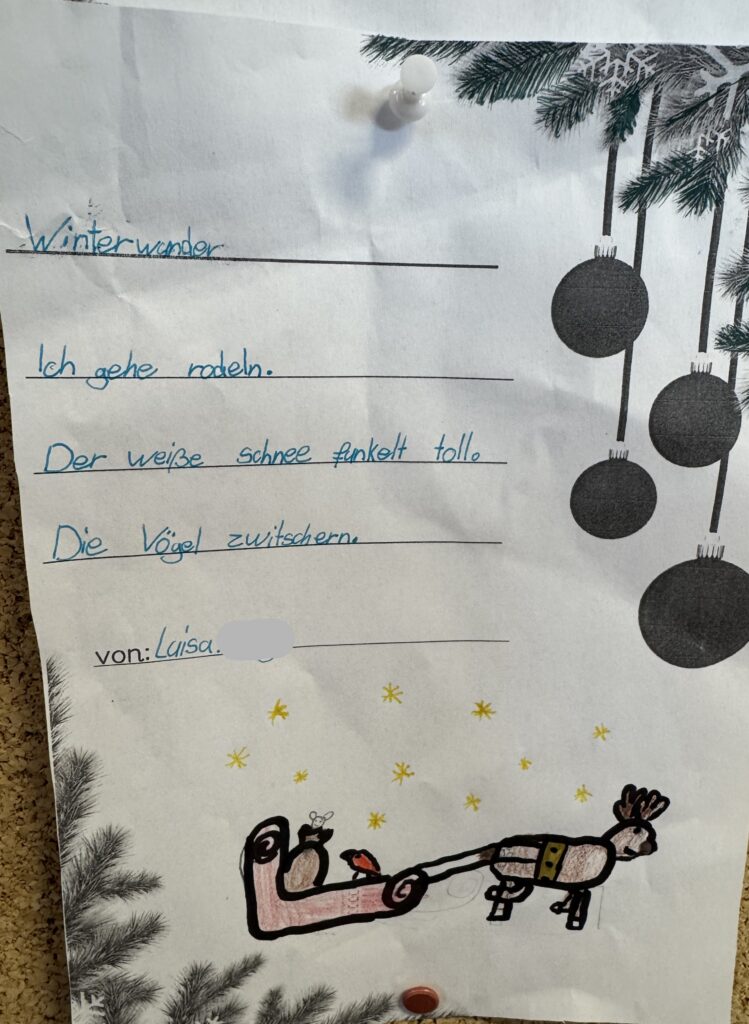 Winterwunder
Ich gehe rodeln.
Der weiße schnee funkelt toll.
Die Vögel zwitschern.
von: Luisa.